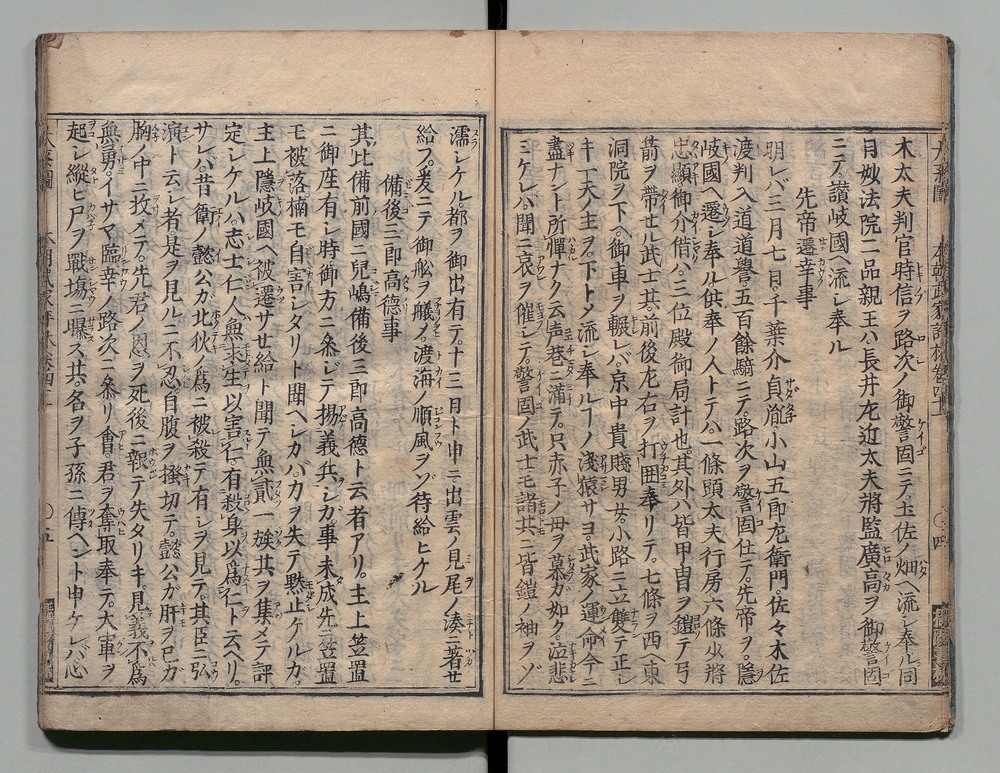 木太夫判官時信ヲ路次ノ御警固ニテ土佐ノ畑ヘ流シ奉ル同
月妙法院二品親王ハ長井左近太夫將監廣高ヲ御警固
ニテ讃岐國ヘ流シ奉ル
先帝遷幸事
明レバ三月七日千葉介貞胤小山五郎左衛門佐々木佐
渡判入道道譽五百餘騎ニテ路次ヲ警固仕テ先帝ヲ隱
岐國ヘ遷シ奉ル供奉ノ人トテハ一條頭太夫行房六條少將
忠顯御介借ハ三位殿御局計也其外ハ皆甲冑ヲ鎧テ弓
箭ヲ帶セル武士共前後左右ヲ打囲奉リテ七條ヲ西ヘ東
洞院ヲ下ヘ御車ヲ輾レバ京中貴賤男女小路ニ立雙テ正シ
キ一天ノ主ヲ下トメ流シ奉ルヿノ淺猿サヨ武家ノ運命今ニ
盡ナント所憚ナク云声巷ニ滿テ只赤子ノ母ヲ慕ガ如ク泣悲
ミケレバ聞ニ哀ヲ催シテ警固ノ武士モ諸共ニ皆鎧ノ袖ヲゾ
濡シケル都ヲ御出有テ十三日ト申ニ出雲ノ見尾ノ湊ニ著セ
給フ爰ニテ御舩ヲ艤ノ渡海ノ順風ヲゾ待給ヒケル
備後三郎高德事
其比備前國ニ兒嶋備後三郎高德ト云者アリ主上笠置
ニ御座有シ時御方ニ参ジテ揚義兵シガ事未成先ニ笠置
モ被落楠モ自害シタリト聞ヘシカバ力ヲ失テ黙止ケルカ
主上隱岐國ヘ被遷サセ給ト聞テ無貳一族共ヲ集メテ評
定シケルハ志士仁人無求生以害仁有殺身以爲仁ト云ヘリ
サレバ昔衛ノ懿公ガ北狄ノ爲ニ被殺テ有シヲ見テ其臣ニ弘
演ト云シ者是ヲ見ルニ不忍自腹ヲ搔切テ懿公ガ肝ヲ己カ
胸ノ中ニ收メテ先君ノ恩ヲ死後ニ報テ失タリキ見義不爲
無勇イサマ臨幸ノ路次ニ参リ會君ヲ奪取奉テ大軍ヲ
起シ縱ヒ尸ヲ戰塲ニ曝ス共名ヲ子孫ニ傳ヘント申ケレバ心